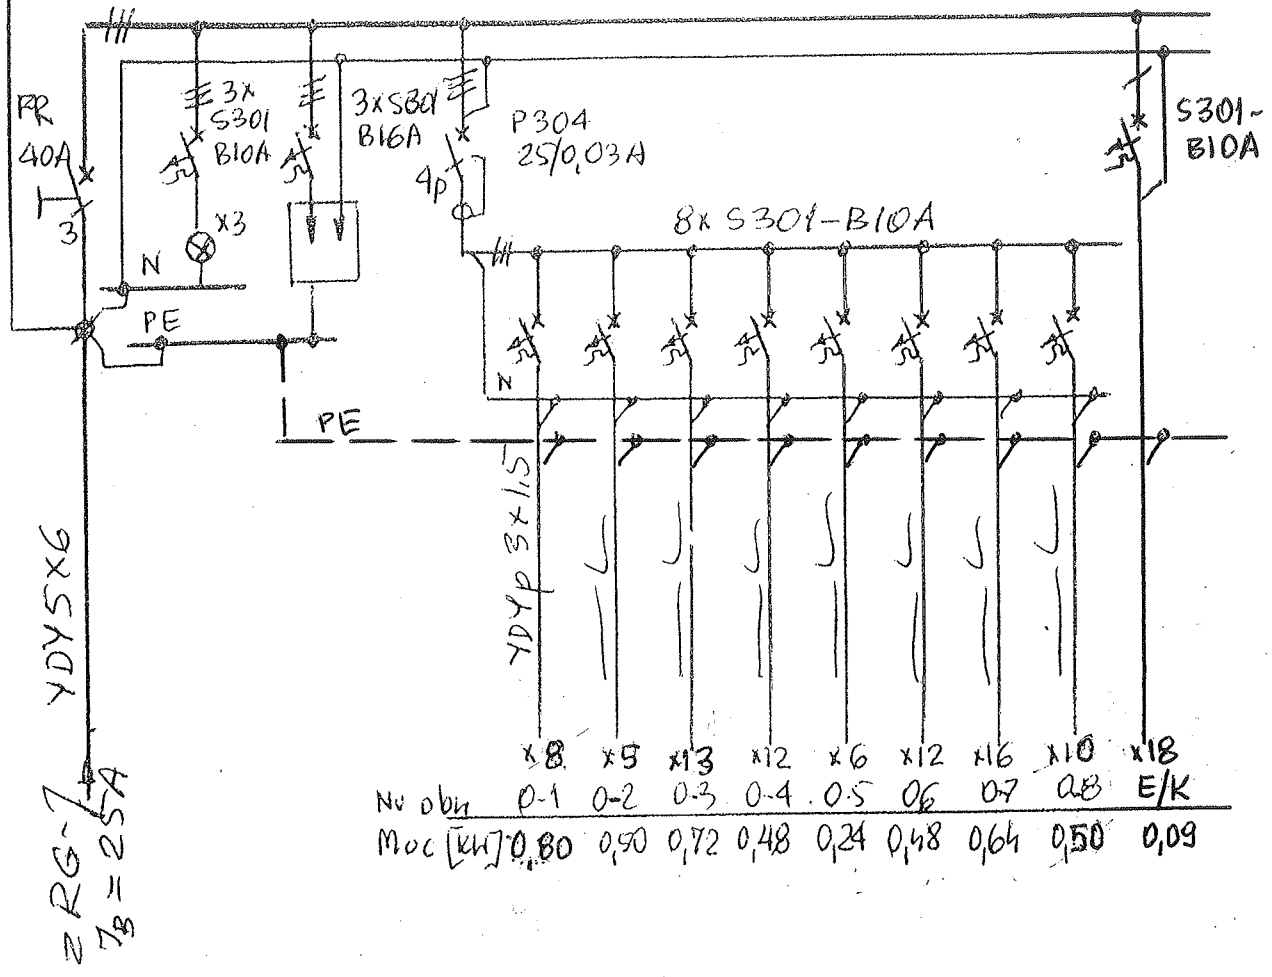 FR
40A
3
3x
S301
B10A
x3
3xS301
B16A
P304
25/0,03A
4p
S301-
B10A
8x S301-B10A
N
PE
N
PE
YDY5x6
YDYp 3x1,5
z RG-7
IB=25A
x8 x9 x13 x12 x6 x12 x16 x10 x18
Nr obw 0-1 0-2 0-3 0-4 0-5 06 0-7 0-8 E/K
Moc [kW] 0,80 0,90 0,72 0,48 0,24 0,48 0,64 0,50 0,09